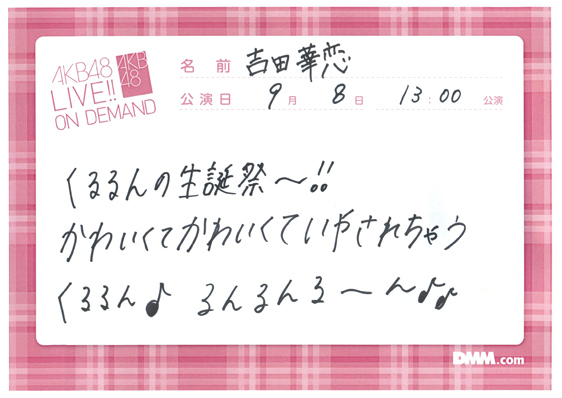 AKB48
LIVE!!
ON DEMAND
AKB
48
名前 吉田華恋
公演日 9月 8日 13:00 公演
くるるんの生誕祭〜!!
かわいくてかわいくていやされちゃう
くるるん♪ るんるんる〜ん♪♪
DMM.com